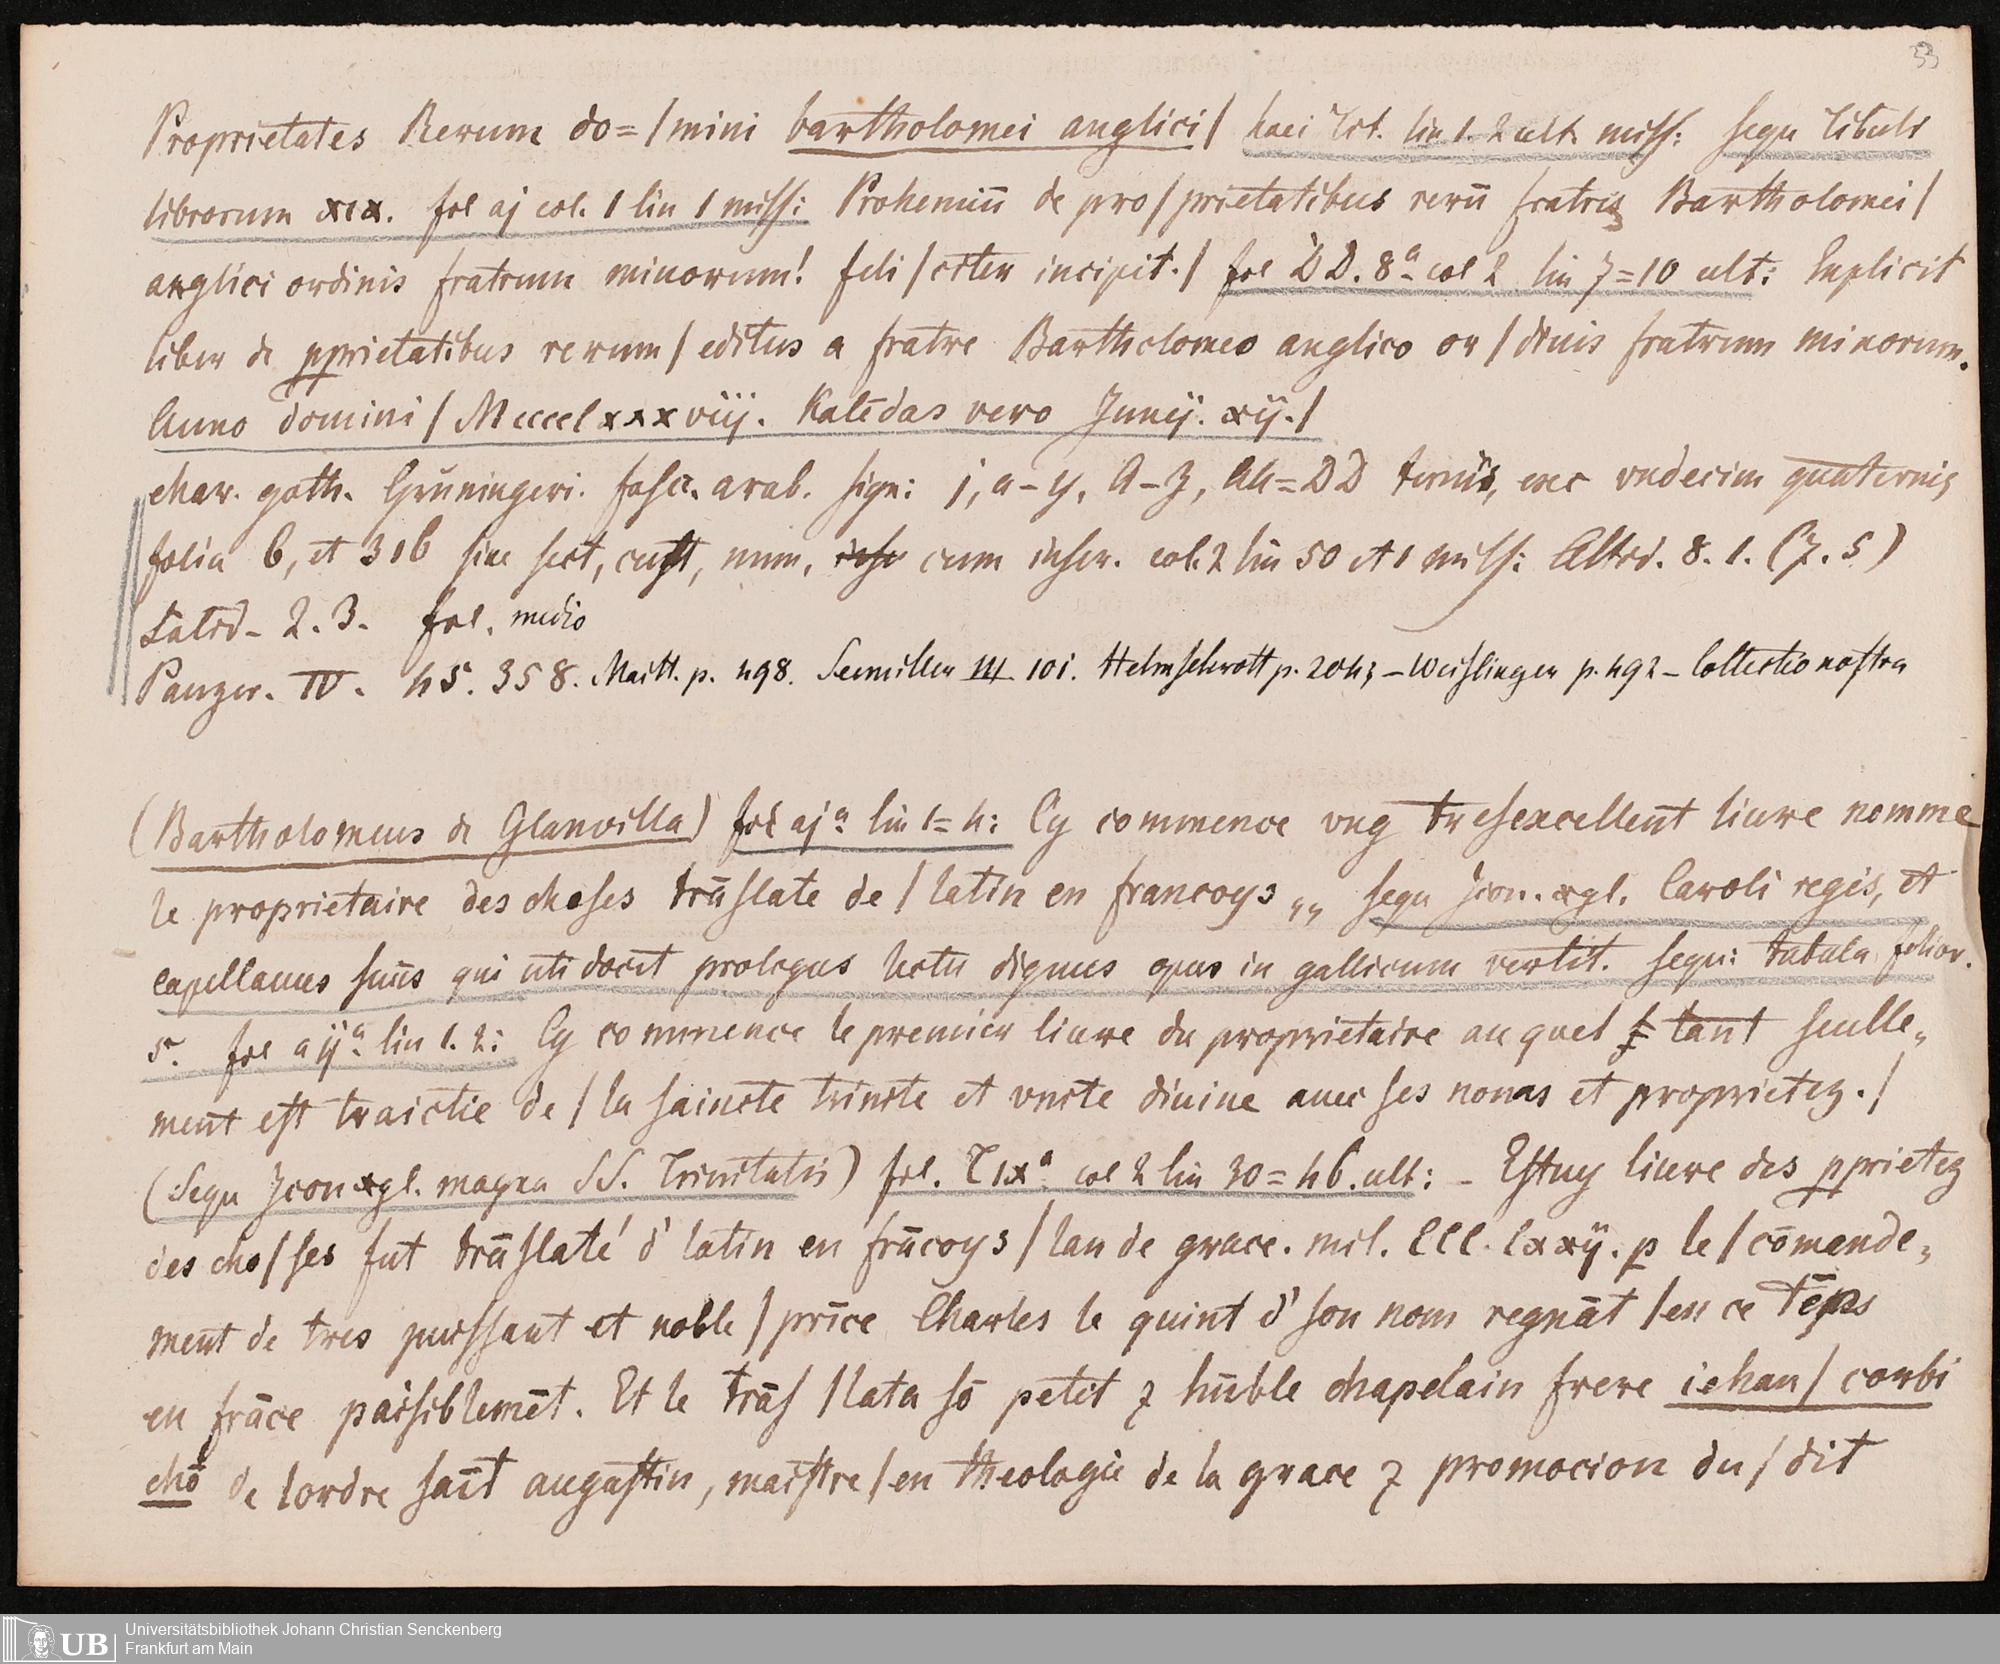 33
Proprietates Rerum do=/mini bartholomei anglici/ haec tit. lin 1. 2 ult. miss: sequ tituli
librorum xix. fol aj col. 1 lin 1 miss: Prohemiū de pro/prietatibus rerū fratris Bartholomei/
anglici ordinis fratrum minorum! feli/citer incipit./ fol DD. 8ᵃ col 2 lin 7=10 ult: Explicit
liber de pprietatibus rerum/ editus a fratre Bartholomeo anglico or/dinis fratrum minorum.
Anno domini/ Mcccclxxxviij. Kalēdas vero Junij. xij./
char. goth. Grüningeri. fasc. arab. sign: j, a-y, A-Z, AA=DD ternis, exc vndecim quaternis
folia 6, et 316 sine sect, cust, num, cum inscr. col. 2 lin 50 et 1 miss: Altit. 8. 1. (7. 5)
Latit- 2. 3. fol. medio
Panzer. IV. 45. 358. Maitt. p. 498. Seemiller III 101. Helmschrott p. 204; - Weislinger p. 492 - Collectio nostra
(Bartholomeus de Glanvilla) fol ajᵃ lin 1=4: Cy commence vng tresexcellent liure nomme
le proprietaire des choses trāslate de/ latin en francoys ,, sequ Icon. xgl. Caroli regis, et
capellanus suus qui uti docet prologus lectu dignus opus in gallicum vertit. sequ: tabula folior.
5. fol aijᵃ lin 1. 2: Cy commence le premier liure du proprietaire au quel tant seulle,
ment est traictie de/ la saincte trinite et vnite diuine auec ses nonas et proprietez./
(Sequ Icon xgl. magna SS. Trinitatis) fol. C ixᵃ col 2 lin 30=46. ult: - Estuy liure des pprietez
des cho/ses fut trāslaté d' latin en frācoys/ lan de grace. mil. CCC. lxxij. p le/ cōmande,
ment de tres puissant et noble/ prīce Charles le quint d' son nom regnāt/ en ce tēps
en frāce paisiblemēt. Et le trās/lata sō petit z hūble chapelain frere iehan/ corbi
chō de lordre saīt augustin, maistre/ en theologie de la grace z promocion du/ dit
UB Universitätsbibliothek Johann Christian Senckenberg
Frankfurt am Main